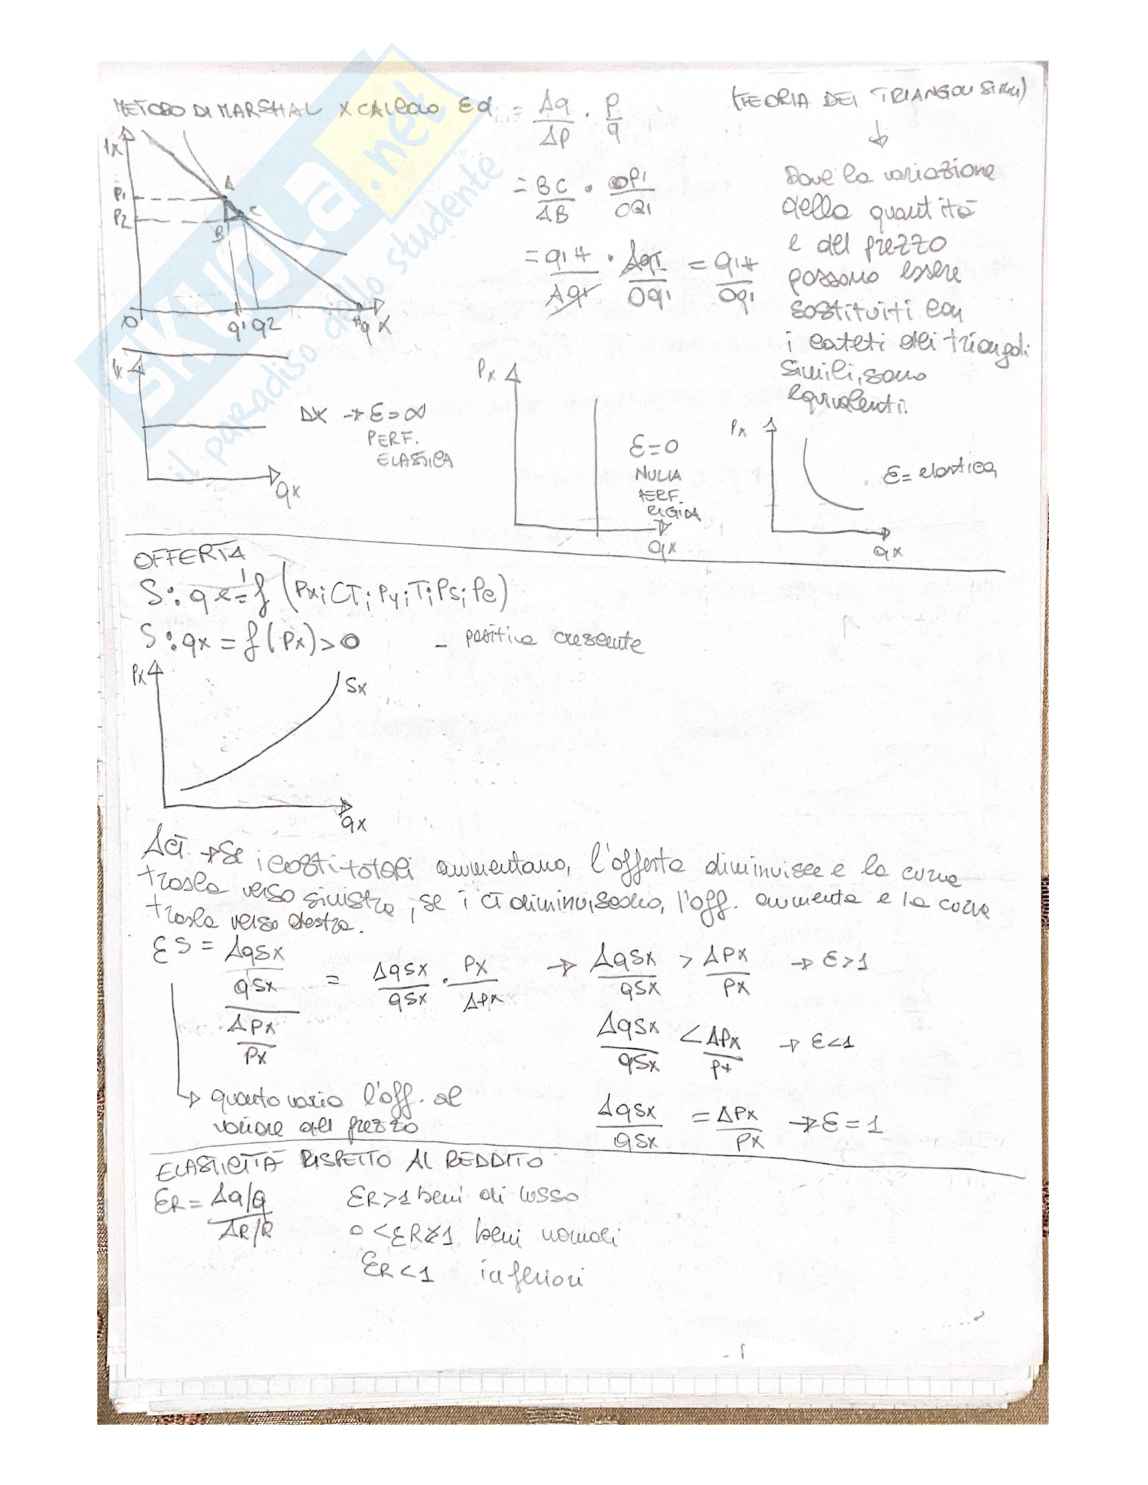 METODO DI MARSHAL X CALCOLO Ed = Δq/Δp · P/q
(TEORIA DEI TRIANGOLI SIMILI)
= BC/AB · OP1/OQ1
= q1H/Aq1 · Aq1/Oq1 = q1H/Oq1
Dove la variazione
della quantità
e del prezzo
possono essere
sostituiti con
i cateti dei triangoli
simili, sono
equivalenti.
P1
P2
A
B
C
O
q1 q2
H
qx
SKUOLA.net
il paradiso dello studente
qx
DX → Ɛ=∞
PERF.
ELASTICA
Px
Ɛ=0
NULLA
PERF.
RIGIDA
qx
Px
Ɛ= elastica
qx
OFFERTA
S: qx=f (Px; CT; Py; T; Ps; Pe)
S: qx = f(Px)>0 - positiva crescente
Px
Sx
qx
ΔCT → Se i costi totali aumentano, l'offerta diminuisce e la curva
trasla verso sinistra, se i CT diminuiscono, l'off. aumenta e la curva
trasla verso destra.
ƐS = ΔqSx/qSx / ΔPx/Px = ΔqSx/qSx · Px/ΔPx → ΔqSx/qSx > ΔPx/Px → Ɛ>1
ΔqSx/qSx < ΔPx/Px → Ɛ<1
ΔqSx/qSx = ΔPx/Px → Ɛ=1
↳ quanto varia l'off. al
variare del prezzo
ELASTICITÀ RISPETTO AL REDDITO
ƐR = Δq/q / ΔR/R
ƐR>1 beni di lusso
0<ƐR<1 beni normali
ƐR<1 inferiori